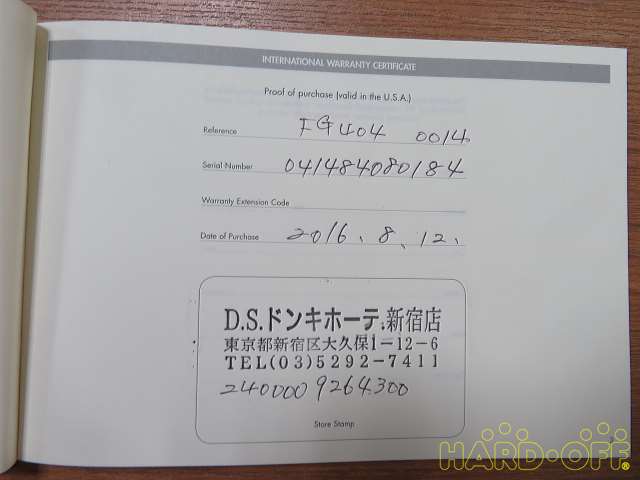 INTERNATIONAL WARRANTY CERTIFICATE
Proof of purchase (valid in the U.S.A.)
Reference IGU04 0014
Serial Number 041484080184
Warranty Extension Code
Date of Purchase 2016、8、12、
D.S.ドンキホーテ新宿店
東京都新宿区大久保1-12-6
TEL(03)5292-7411
2400009264300
Store Stamp
HARD・OFF®